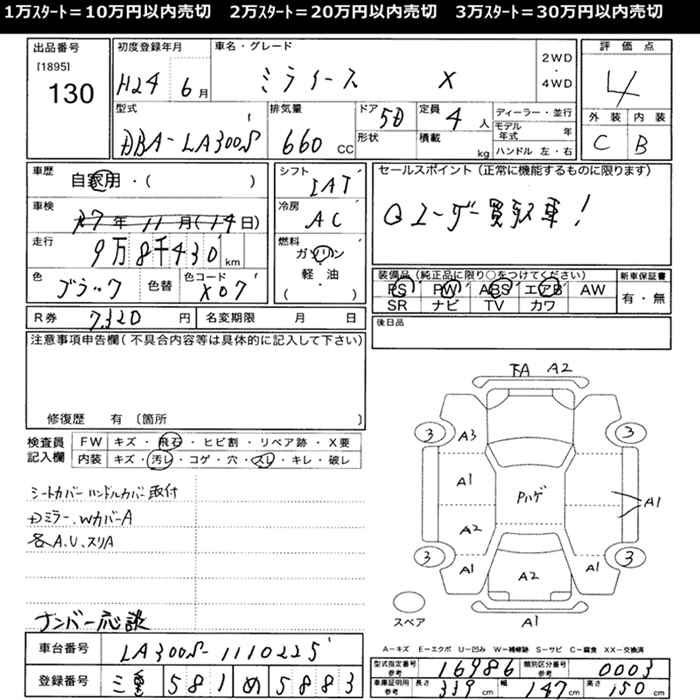 1万ｽﾀｰﾄ＝10万円以内売切　2万ｽﾀｰﾄ＝20万円以内売切　3万ｽﾀｰﾄ＝30万円以内売切
出品番号 [1895] 130
初度登録年月 H24 6月
車名・グレード ミライース X
2WD・4WD
評価点 4
型式 DBA-LA300S
排気量 660 CC
ドア 5D
形状
定員 4人
積載 kg
ディーラー・並行
モデル年式 年
ハンドル 左・右
外装 C 内装 B
車歴 自家用・( )
シフト IAT
セールスポイント（正常に機能するものに限ります）
Qユーザー買取車！
車検 27年11月(14日)
冷房 AC
走行 9万8千430km
燃料 ガソリン 軽・油 ( )
色 ブラック 色替 色コード X07
装備品（純正品に限り○をつけてください）
PS PW ABS エアB AW
SR ナビ TV カワ
新車保証書 有・無
R券 7,320円 名変期限 月 日
後日品
注意事項申告欄（不具合内容等は具体的に記入して下さい）
修復歴 有〔箇所 〕
検査員記入欄
FW キズ・飛石・ヒビ割・リペア跡・X要
内装 キズ・汚レ・コゲ・穴・スレ・キレ・破レ
シートカバー ハンドルカバー取付
Dミラー、WカバーA
各A.U.スリA
ナンバー応談
下A A2
3 3
A3
A1
Pハゲ
A1
A2
3 3
A1 A2 A1
スペア A1
A－キズ E－エクボ U－凹み W－補修跡 S－サビ C－腐食 XX－交換済
車台番号 LA300S-1110225
型式指定番号 参考 16986 類別区分番号 参考 0003
登録番号 三重 581 め 5883
車庫証明用 参考 長さ 339cm 幅 147cm 高さ 150cm